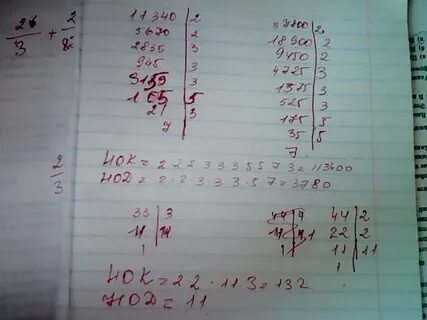 11340 | 2
5670 | 2
2835 | 3
945 | 3
315 | 3
105 | 5
21 | 3
7
37800 | 2
18900 | 2
9450 | 2
4725 | 3
1575 | 3
525 | 3
175 | 5
35 | 5
7
2/3
НОК = 2·2·2·3·3·3·5·5·7·3=113400
НОД = 2·2·3·3·3·5·7=3780
33 | 3
11 | 11
1
44 | 2
22 | 2
11 | 11
1
НОК = 2 2 · 11 3 = 132
НОД = 11